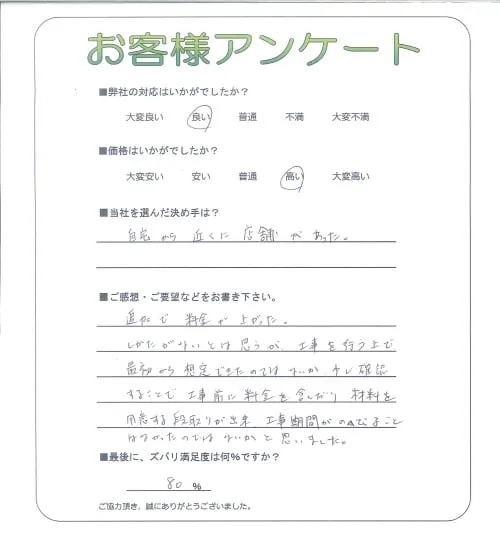 お客様アンケート
■弊社の対応はいかがでしたか？
大変良い 良い 普通 不満 大変不満
■価格はいかがでしたか？
大変安い 安い 普通 高い 大変高い
■当社を選んだ決め手は？
自宅から近くに店舗があった。
■ご感想・ご要望などをお書き下さい。
追加で料金が上がった。
しかたがないとは思うが、工事を行う上で
最初から想定できたのではないか、 確認
することで工事前に料金を含んだり材料を
用意する段取りが出来、工事期間がのびること
はなかったのではないかと思いました。
■最後に、ズバリ満足度は何%ですか？
80 %
ご協力頂き、誠にありがとうございました。